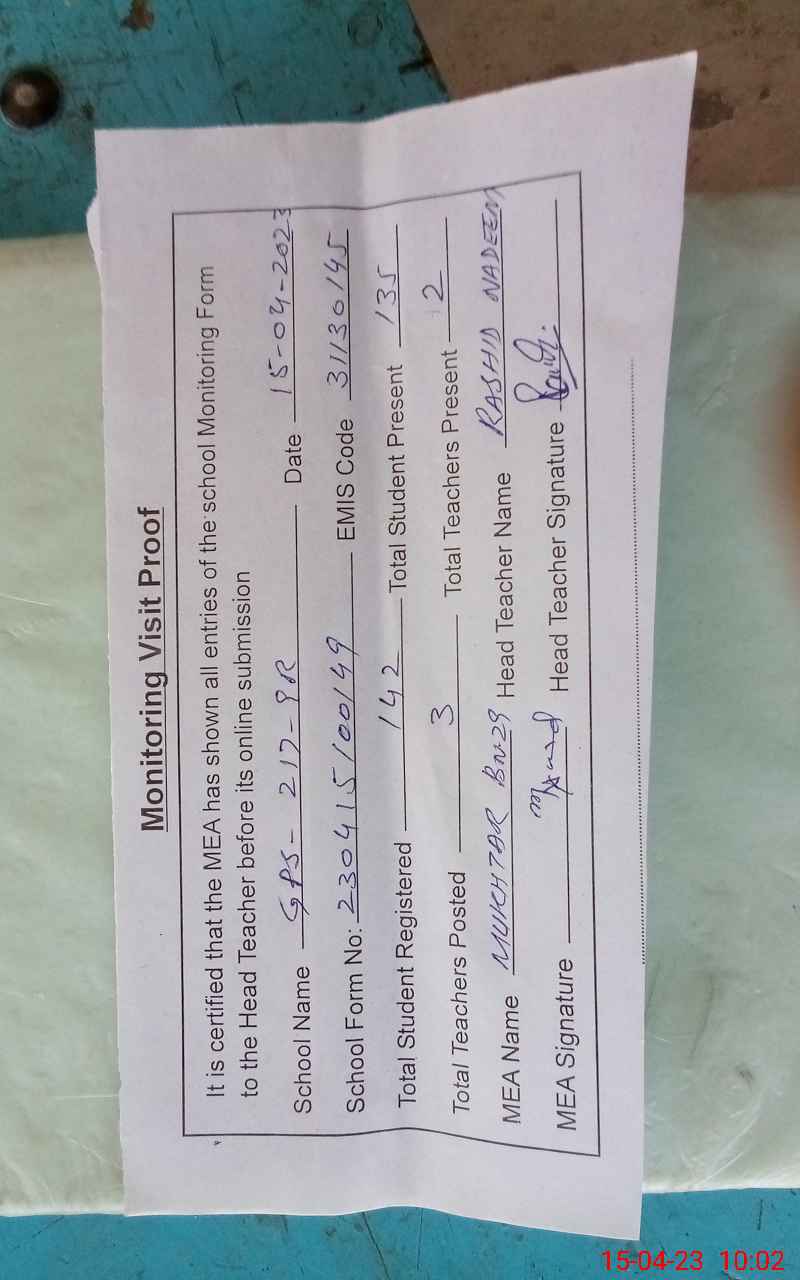 Monitoring Visit Proof
It is certified that the MEA has shown all entries of the school Monitoring Form
to the Head Teacher before its online submission
School Name GPS- 217-9R Date 15-04-2023
School Form No: 230415100149 EMIS Code 31130145
Total Student Registered 142 Total Student Present 135
Total Teachers Posted 3 Total Teachers Present 2
MEA Name MUKHTAR BN-29 Head Teacher Name RASHID NADEEM
MEA Signature Head Teacher Signature
15-04-23 10:02